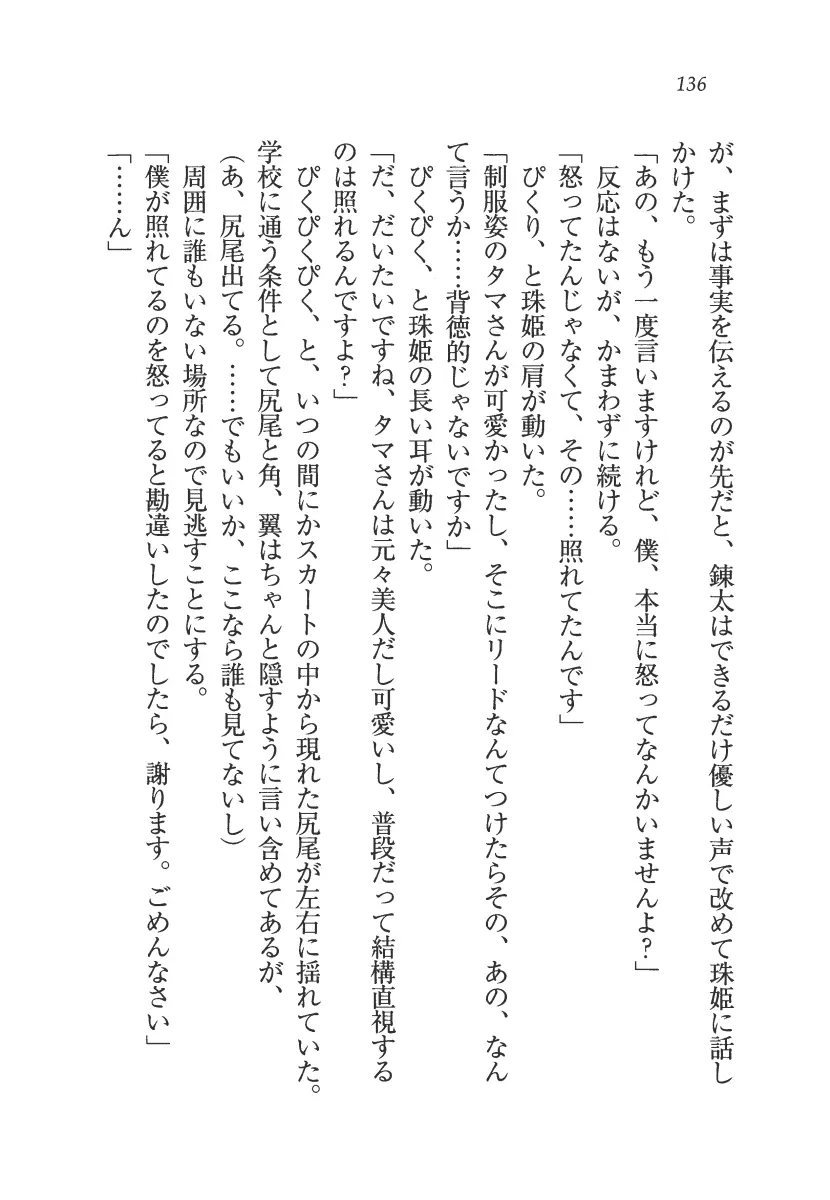 136
が、まずは事実を伝えるのが先だと、錬太はできるだけ優しい声で改めて珠姫に話し
かけた。
「あの、もう一度言いますけれど、僕、本当に怒ってなんかいませんよ？」
反応はないが、かまわずに続ける。
「怒ってたんじゃなくて、その……照れてたんです」
ぴくり、と珠姫の肩が動いた。
「制服姿のタマさんが可愛かったし、そこにリードなんてつけたらその、あの、なん
て言うか……背徳的じゃないですか」
ぴくぴく、と珠姫の長い耳が動いた。
「だ、だいたいですね、タマさんは元々美人だし可愛いし、普段だって結構直視する
のは照れるんですよ？」
ぴくぴくぴく、と、いつの間にかスカートの中から現れた尻尾が左右に揺れていた。
学校に通う条件として尻尾と角、翼はちゃんと隠すように言い含めてあるが、
（あ、尻尾出てる。……でもいいか、ここなら誰も見てないし）
周囲に誰もいない場所なので見逃すことにする。
「僕が照れてるのを怒ってると勘違いしたのでしたら、謝ります。ごめんなさい」
「……ん」